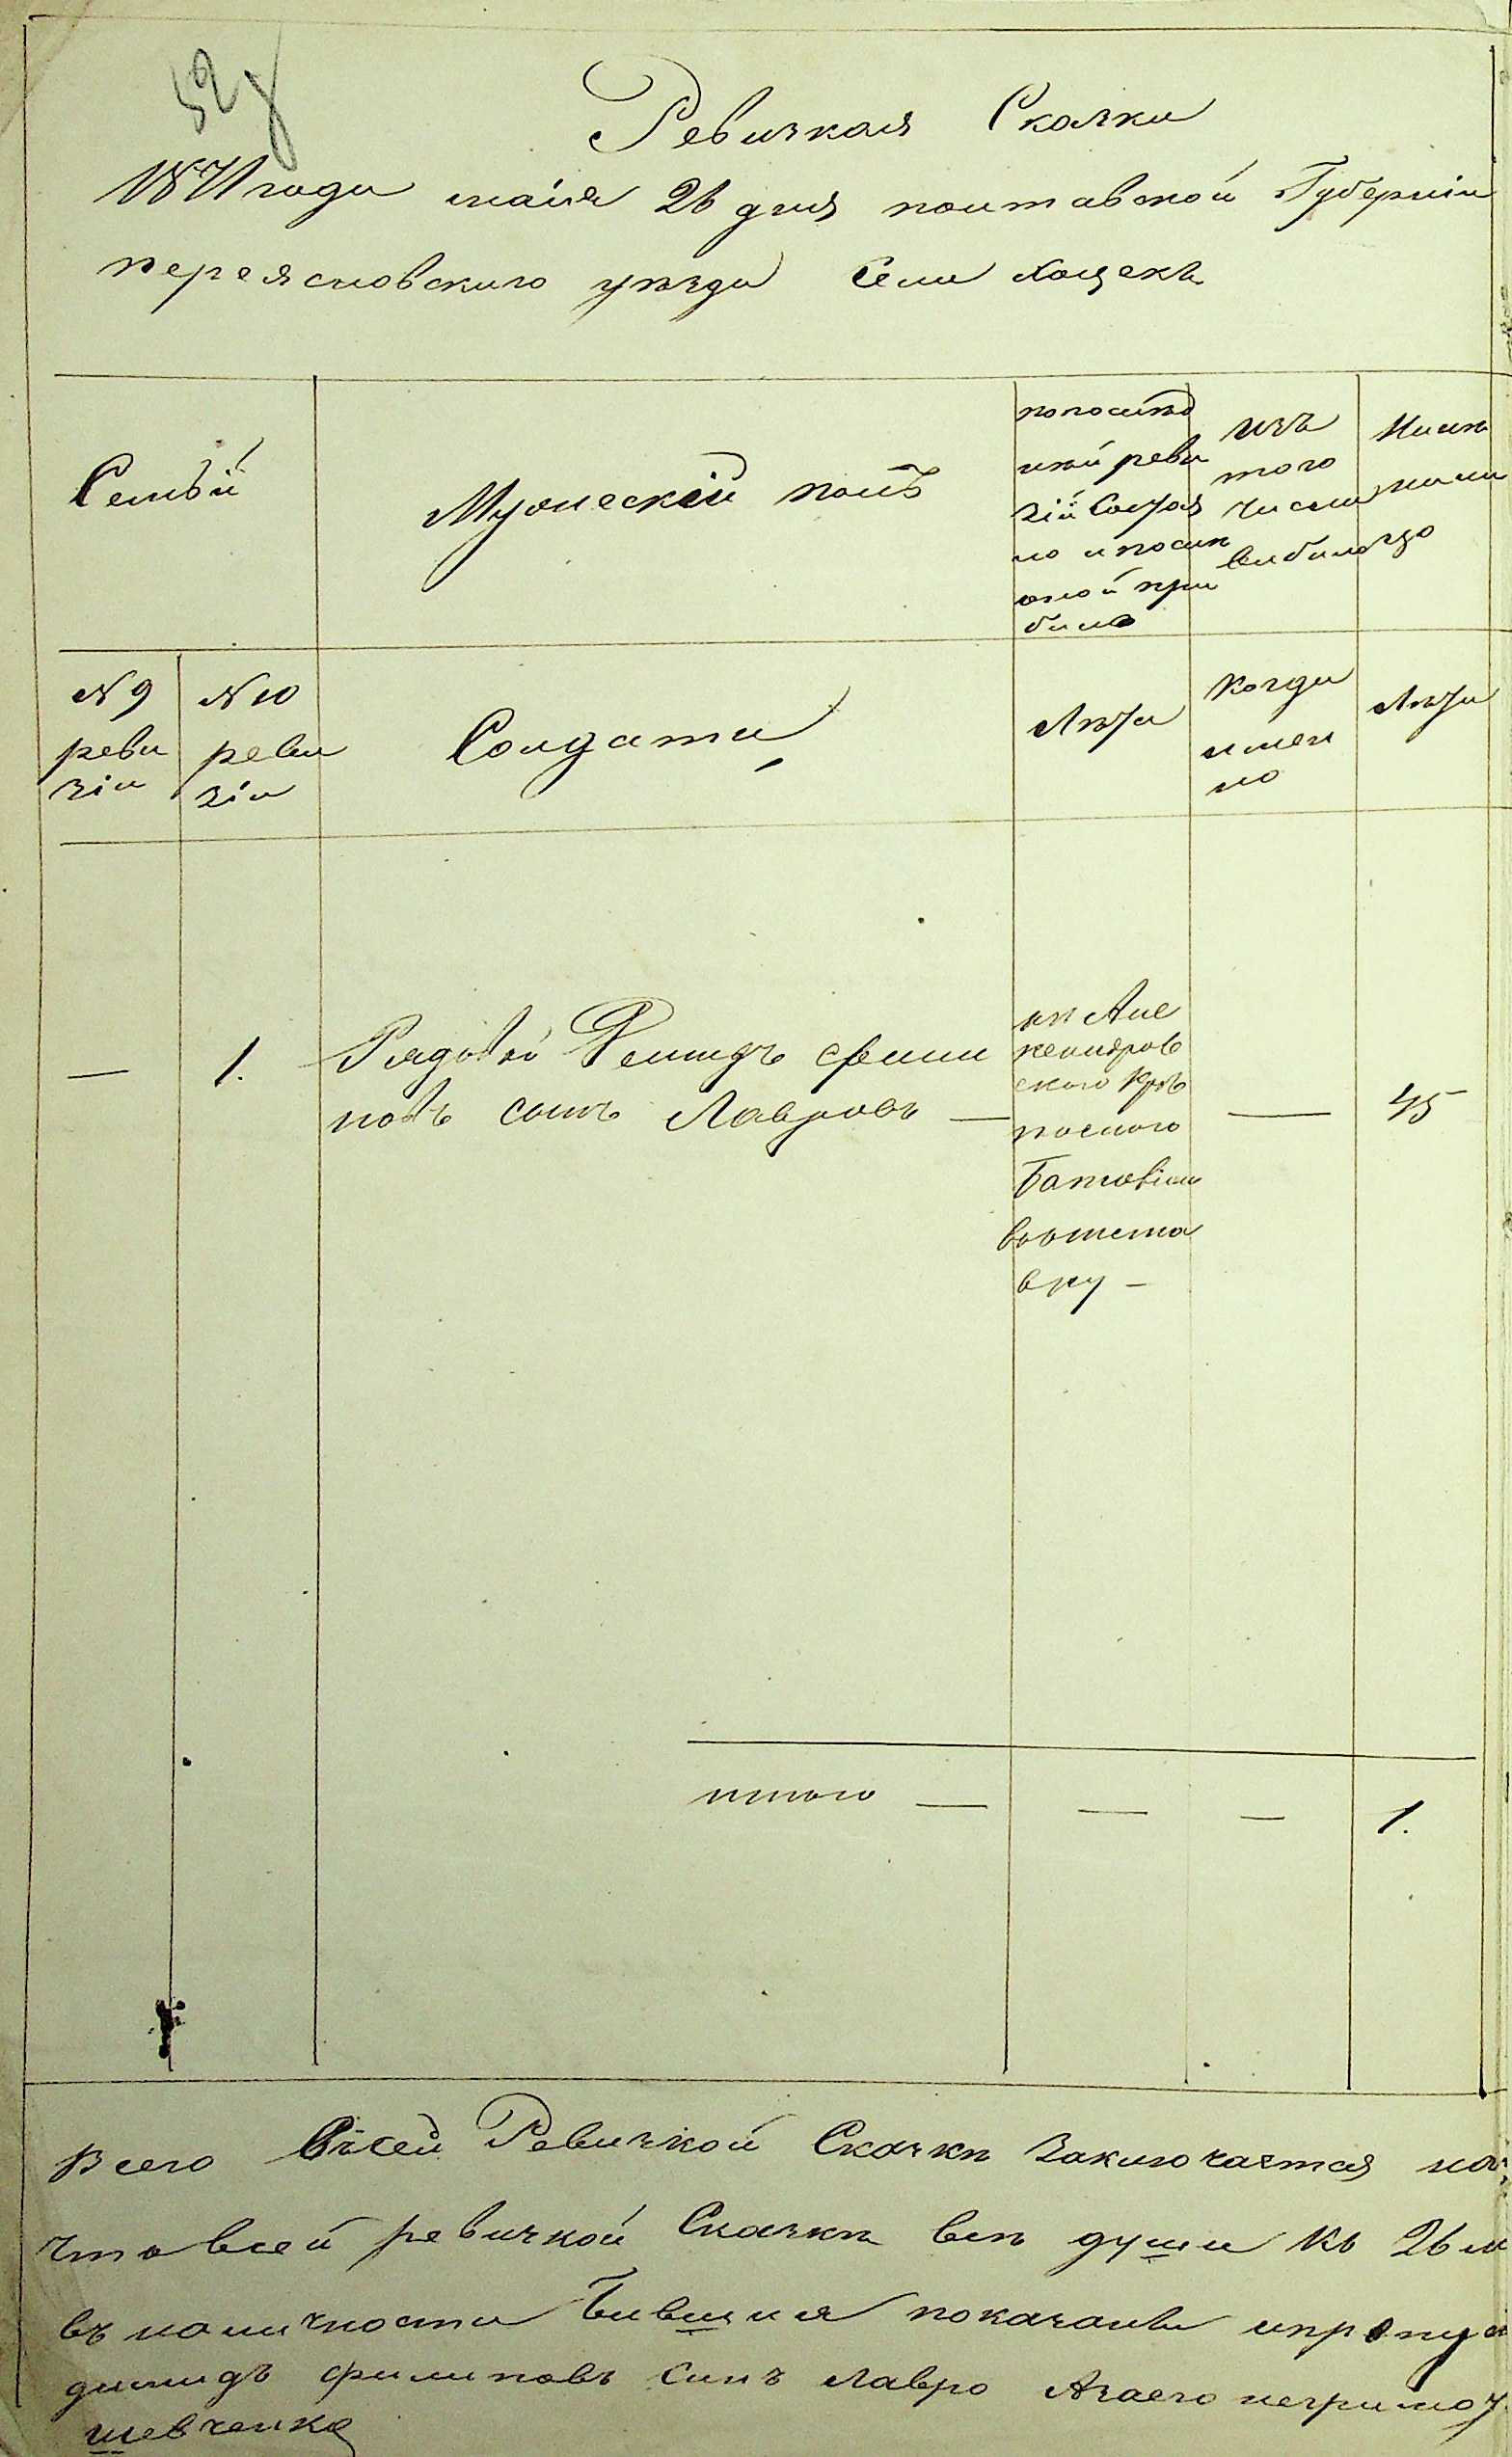 Ревизкая Сказка
1871 года маія 26 дня полтавской Губерніи
переясловского уѣзда Села хоцекъ
Семьи
Мужескій полъ
попослѣд
нѣй реви
зіи Состоя
ло и послѣ
оной при
было
изъ
того
числа
выбыло
Нынѣ
на ли
цо
№ 9
реви
зіи
№ 10
реви
зіи
Солдати
Лѣта
Когда
имен
но
Лѣта
— 1. Рядовой Демидъ фили
повъ синъ Лавровъ —
изъ Але
ксандров
ского Крѣ
посного
Баталіона
вотста
вку —
— 45
итого — — — 1.
Всего Всей Ревизкой Сказки Заключается
что всей ревизкой Сказки всѣ души къ 26
въ наличности бившия показани
димидъ филиповъ Синъ лавро
шевченко